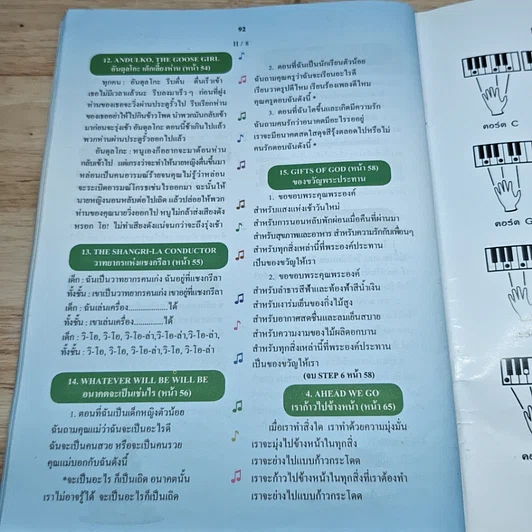 92
II / 8
12. ANDULKO, THE GOOSE GIRL
อันดุลโกะ เด็กเลี้ยงห่าน (หน้า 54)
ทุกคน : อันดุลโกะ รีบตื่น ตื่นเร็วเข้า
เธอไม่มีเวลาแล้วนะ รีบลงมาเร็ว ๆ ก่อนที่ฝูง
ห่านของเธอจะวิ่งผ่านประตูรั้วไป รีบเรียกห่าน
ของเธออย่าให้ไปกินข้าวโพด นำพวกมันกลับเข้า
มาก่อนจะรุ่งเช้า อันดุลโกะ ตอนนี้ช้าเกินไปแล้ว
พวกห่านผ่านประตูรั้วออกไปแล้ว
อันดุลโกะ : หนูเองก็อยากจะมาต้อนห่าน
กลับเข้าไป แต่เกรงว่าจะทำให้นายหญิงตื่นขึ้นมา
หล่อนเป็นคนอารมณ์ร้ายจนคุณไม่รู้ว่าหล่อน
จะระเบิดอารมณ์โกรธเช่นไรออกมา ฉะนั้นให้
นายหญิงนอนหลับต่อไปเถิด แล้วปล่อยให้พวก
ห่านของคุณนายวิ่งออกไป หนูไม่กล้าส่งเสียงดัง
หรอก โอ! ไม่ทำเสียงดังแน่จนกว่าจะถึงรุ่งเช้า
13. THE SHANGRI-LA CONDUCTOR
วาทยากรแห่งแชงกรีลา (หน้า 55)
เด็ก : ฉันเป็นวาทยากรคนเก่ง ฉันอยู่ที่แชงกรีลา
ทั้งชั้น : เขาเป็นวาทยากรคนเก่ง เขาอยู่ที่แชงกรีลา
เด็ก : ฉันเล่นเครื่อง....................ได้
ทั้งชั้น : เขาเล่นเครื่อง..................ได้
เด็ก : วี-โอ, วี-โอ, วี-โอ-ล่า,วี-โอ-ล่า,วี-โอ-ล่า,
ทั้งชั้น : วี-โอ, วี-โอ, วี-โอ-ล่า,วี-โอ, วี-โอ-ล่า
14. WHATEVER WILL BE WILL BE
อนาคตจะเป็นเช่นไร (หน้า 56)
1. ตอนที่ฉันเป็นเด็กหญิงตัวน้อย
ฉันถามคุณแม่ว่าฉันจะเป็นอะไรดี
ฉันจะเป็นคนสวย หรือจะเป็นคนรวย
คุณแม่บอกกับฉันดังนี้
*จะเป็นอะไร ก็เป็นเถิด อนาคตนั้น
เราไม่อาจรู้ได้ จะเป็นอะไรก็เป็นเถิด
2. ตอนที่ฉันเป็นนักเรียนตัวน้อย
ฉันถามคุณครูว่าฉันจะเรียนอะไรดี
เรียนวาดรูปดีไหม เรียนร้องเพลงดีไหม
คุณครูตอบฉันดังนี้ *
3. ตอนที่ฉันโตขึ้นและเกิดมีความรัก
ฉันถามคนรักว่าอนาคตมีอะไรรออยู่
เราจะมีอนาคตสดใสดุจสีรุ้งตลอดไปหรือไม่
คนรักตอบฉันดังนี้ *
15. GIFTS OF GOD (หน้า 58)
ของขวัญพระประทาน
1. ขอขอบพระคุณพระองค์
สำหรับแสงแห่งเช้าวันใหม่
สำหรับการนอนหลับพักผ่อนเมื่อคืนที่ผ่านมา
สำหรับสุขภาพและอาหาร สำหรับความรักกับเพื่อนๆ
สำหรับทุกสิ่งเหล่านี้ที่พระองค์ประทาน
เป็นของขวัญให้เรา
2. ขอขอบพระคุณพระองค์
สำหรับลำธารสีฟ้าและท้องฟ้าสีน้ำเงิน
สำหรับเงาร่มเย็นของกิ่งไม้สูง
สำหรับอากาศสดชื่นและลมเย็นสบาย
สำหรับความงามของไม้ผลิดอกบาน
สำหรับทุกสิ่งเหล่านี้ที่พระองค์ประทาน
เป็นของขวัญให้เรา
(จบ STEP 6 หน้า 58)
4. AHEAD WE GO
เราก้าวไปข้างหน้า (หน้า 65)
เมื่อเราทำสิ่งใด เราทำด้วยความมุ่งมั่น
เราจะมุ่งไปข้างหน้าในทุกสิ่ง
เราจะย่างไปแบบก้าวกระโดด
เราจะก้าวไปข้างหน้าในทุกสิ่งที่เราต้องทำ
เราจะย่างไปแบบก้าวกระโดด
คอร์ด C
คอร์ด G